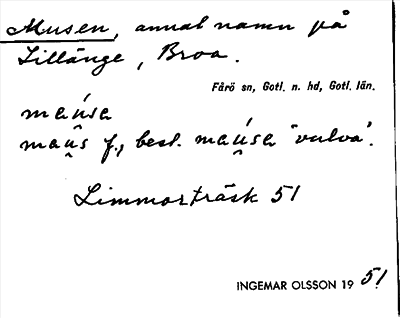 Musen, annat namn på
Lillänge, Broa.
Fårö sn, Gotl. n. hd, Gotl. län.
maú̯sa
mau̯s f., best. maú̯sa "vulva".
Limmorträsk 51
INGEMAR OLSSON 19 51